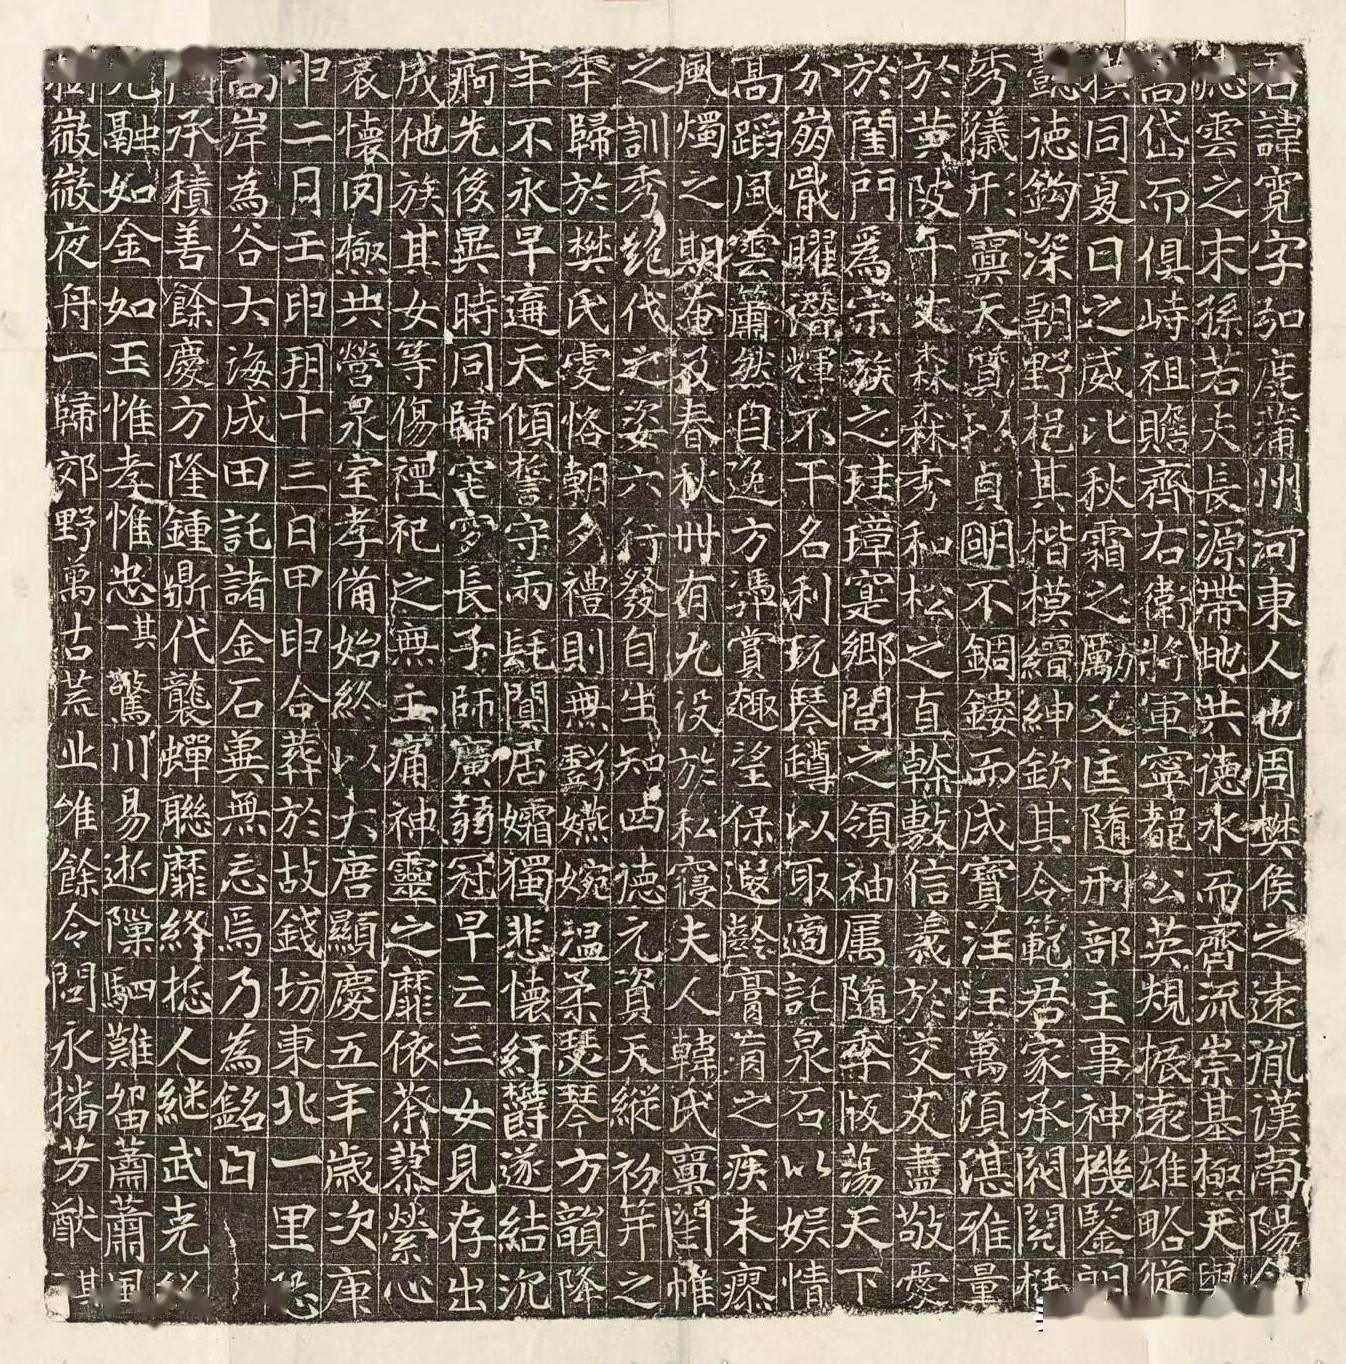 君諱寛字弘度蒲州河東人也周樊侯之遠胤漢南陽令
德雲之末孫若夫長源帶地共德水而齊流崇基極天與
嵩岱而俱峙祖贍齊右衛將軍寧都公英規振遠雄略從
橫同夏日之威比秋霜之勵父匡隨刑部主事神機鑒朗
懿德鈎深朝野挹其楷模縉紳欽其令範君家承閥閱挺
秀儀形稟天質以貞明不錮鏤而成寶汪汪萬頃湛雅量
於黃陂千丈森森秀和松之直榦敷信義於交友盡敬愛
於閨門爲宗族之珪璋寔鄉閭之領袖属隨季版蕩天下
分崩戢曜潛輝不干名利玩琴罇以取適託泉石以娯情
高蹈風雲蕭然自逸方憑賞趣望保遐齡膏肓之疾未瘳
風燭之期奄及春秋卌有九設於私寢夫人韓氏稟閨帷
之訓秀絶代之姿六行發自生知四德元資天縱初笄之
年歸於樊氏虔恪朝夕禮則無虧嬿婉温柔瑟琴方韻降
年不永早遘天傾誓守兩髦闃居孀獨悲懷紆欝遂結沉
痾先後異時同歸窀穸長子師廣蒻冠早亡三女見存出
成他族其女等傷禋祀之無主痛神靈之靡依荼蓼縈心
哀懷罔極共營泉室孝備始終以大唐顯慶五年歲次庚
申二月壬申朔十三日甲申合葬於故錢坊東北一里恐
高岸為谷大海成田託諸金石兼無忘焉乃為銘曰
門承積善餘慶方隆鍾鼎代襲蟬聯靡終挺人継武克紹
光融如金如玉惟孝惟忠其一驚川易逝隟駟難留蕭蕭風
樹微微夜舟一歸郊野萬古荒丘唯餘令問永播芳猷其